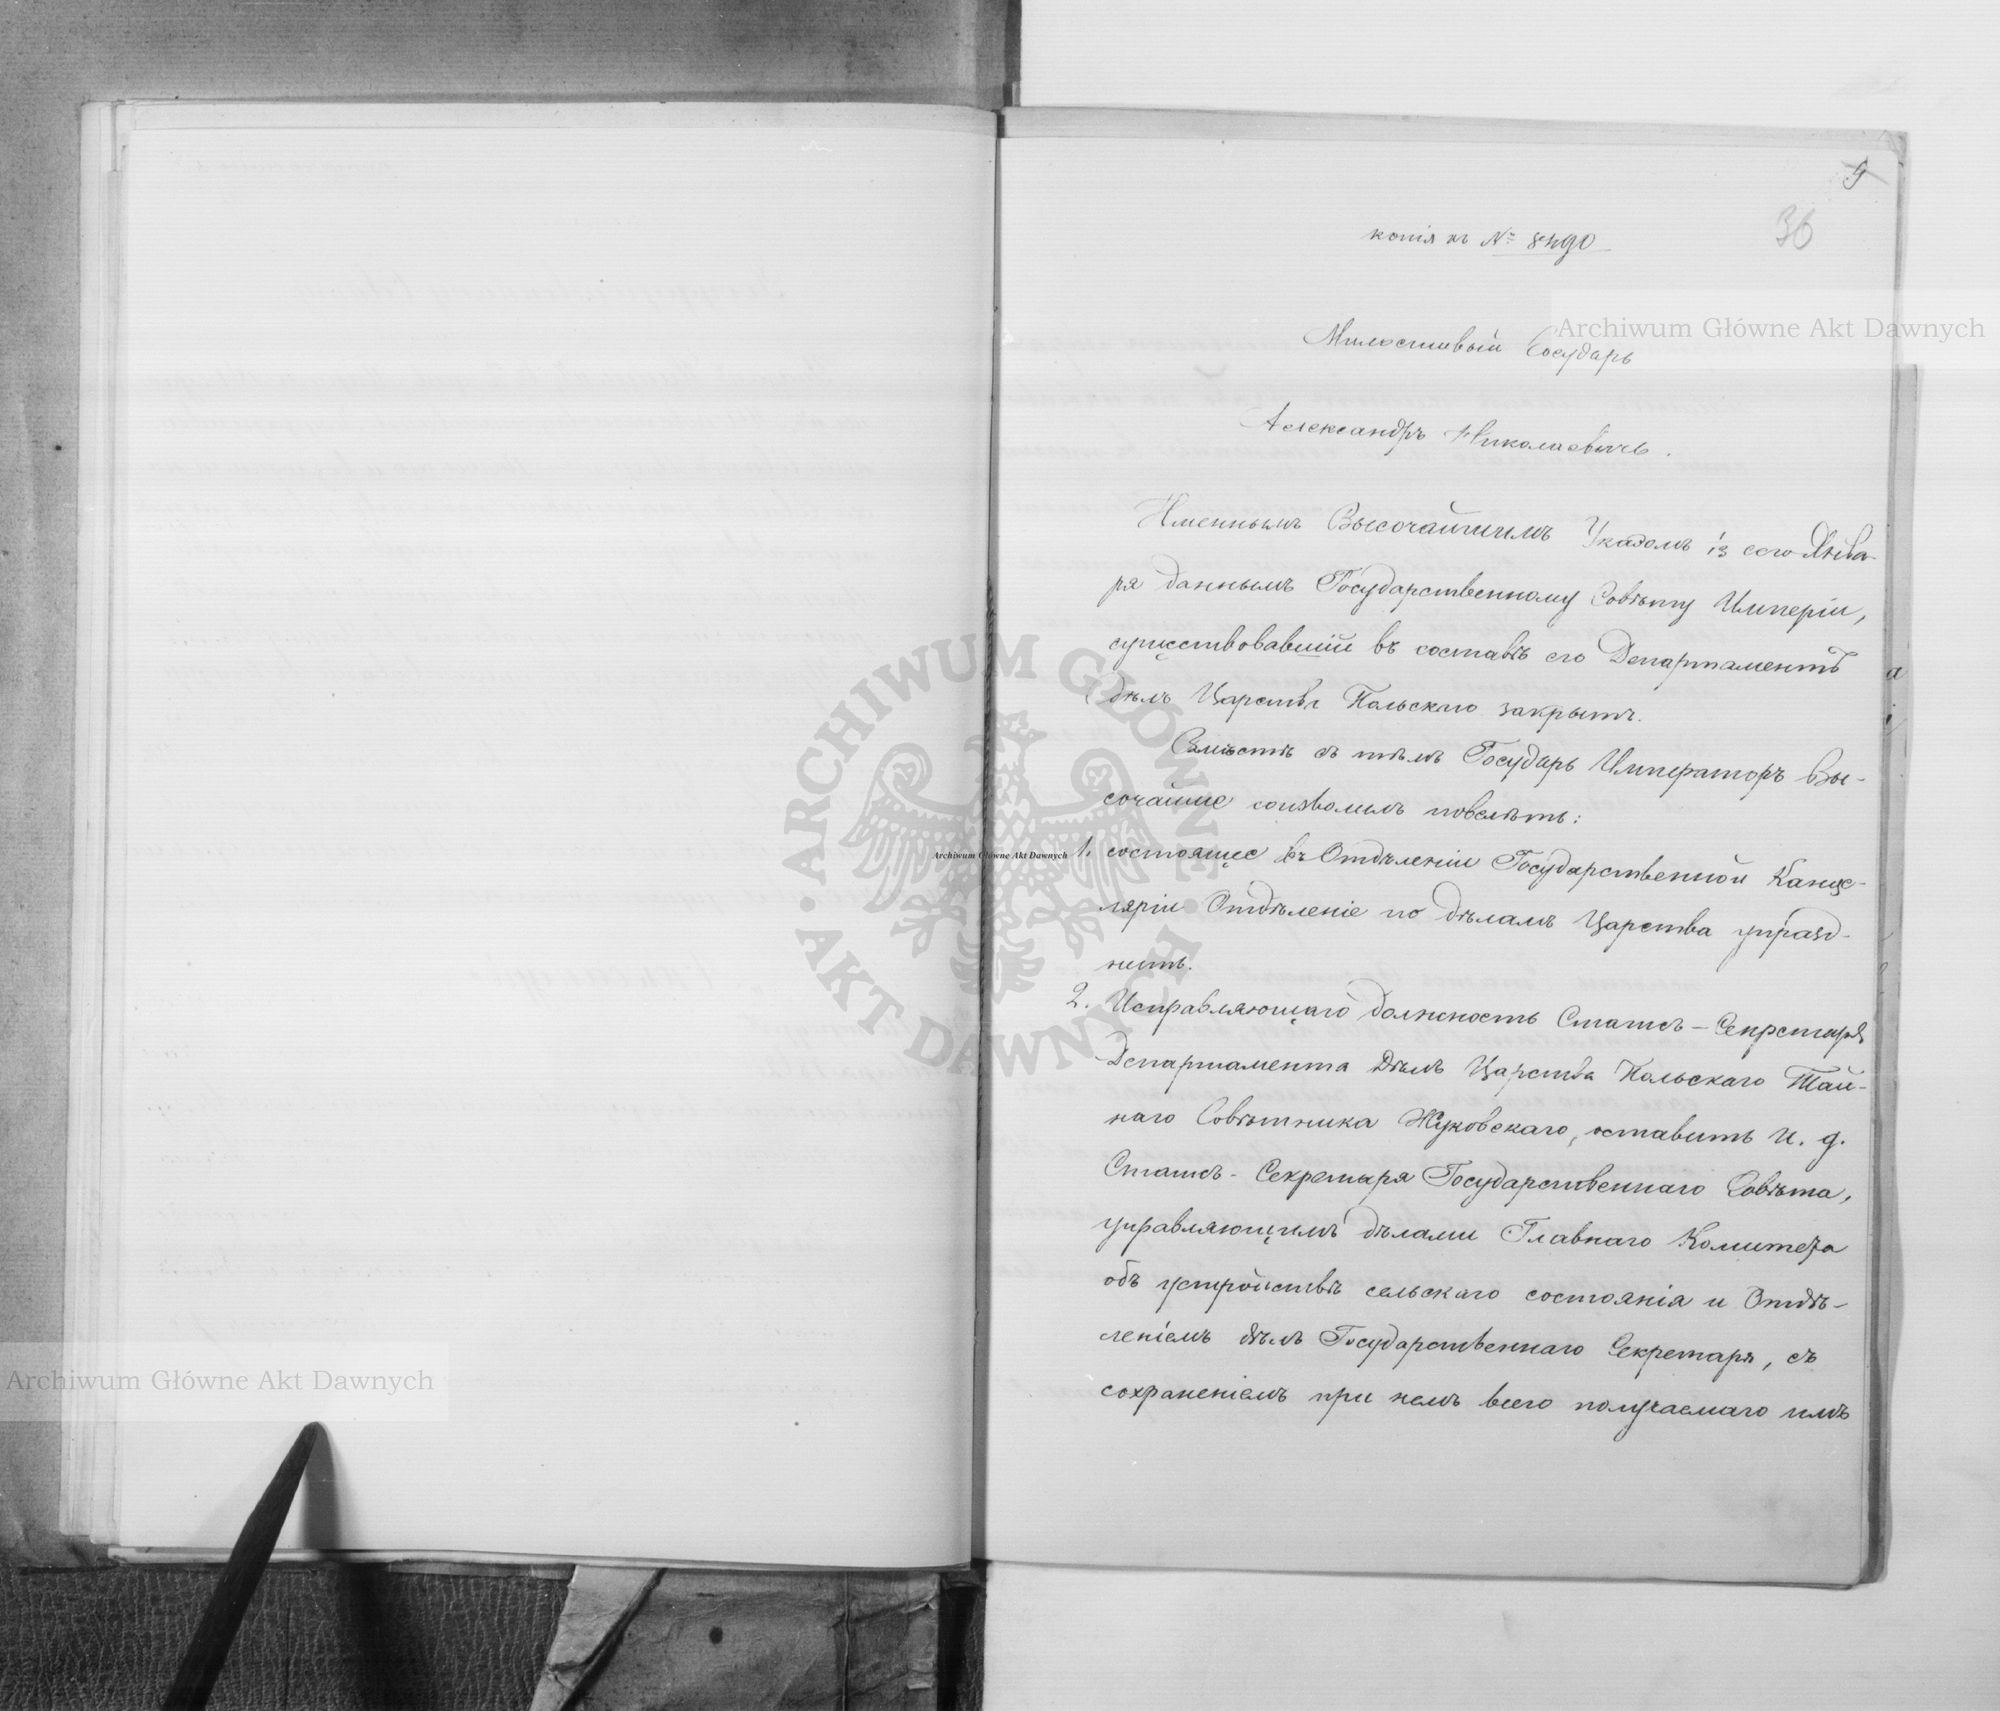 9
36
копія къ № 8490
Милостивый Государь
Александръ Николаевичъ.
Именнымъ Высочайшимъ Указомъ 13 сего Янва-
ря даннымъ Государственному Совѣту Имперіи,
существовавшій въ составѣ его Департаментъ
дѣлъ Царства Польскаго закрытъ.
Вмѣстѣ съ тѣмъ Государь Императоръ Вы-
сочайше соизволилъ повелѣть:
1. состоящее въ Отдѣленіи Государственной Канце-
ляріи Отдѣленіе по дѣламъ Царства упразд-
нить.
2. Исправляющаго должность Статсъ-Секретаря
Департамента Дѣлъ Царства Польскаго Тай-
наго Совѣтника Жуковскаго, оставить и. д.
Статсъ-Секретаря Государственнаго Совѣта,
управляющимъ дѣлами Главнаго Комитета
объ устройствѣ сельскаго состоянія и Отдѣ-
леніемъ дѣлъ Государственнаго Секретаря, съ
сохраненіемъ при немъ всего получаемаго имъ
Archiwum Główne Akt Dawnych
Archiwum Główne Akt Dawnych
Archiwum Główne Akt Dawnych
ARCHIWUM GŁÓWNE AKT DAWNYCH